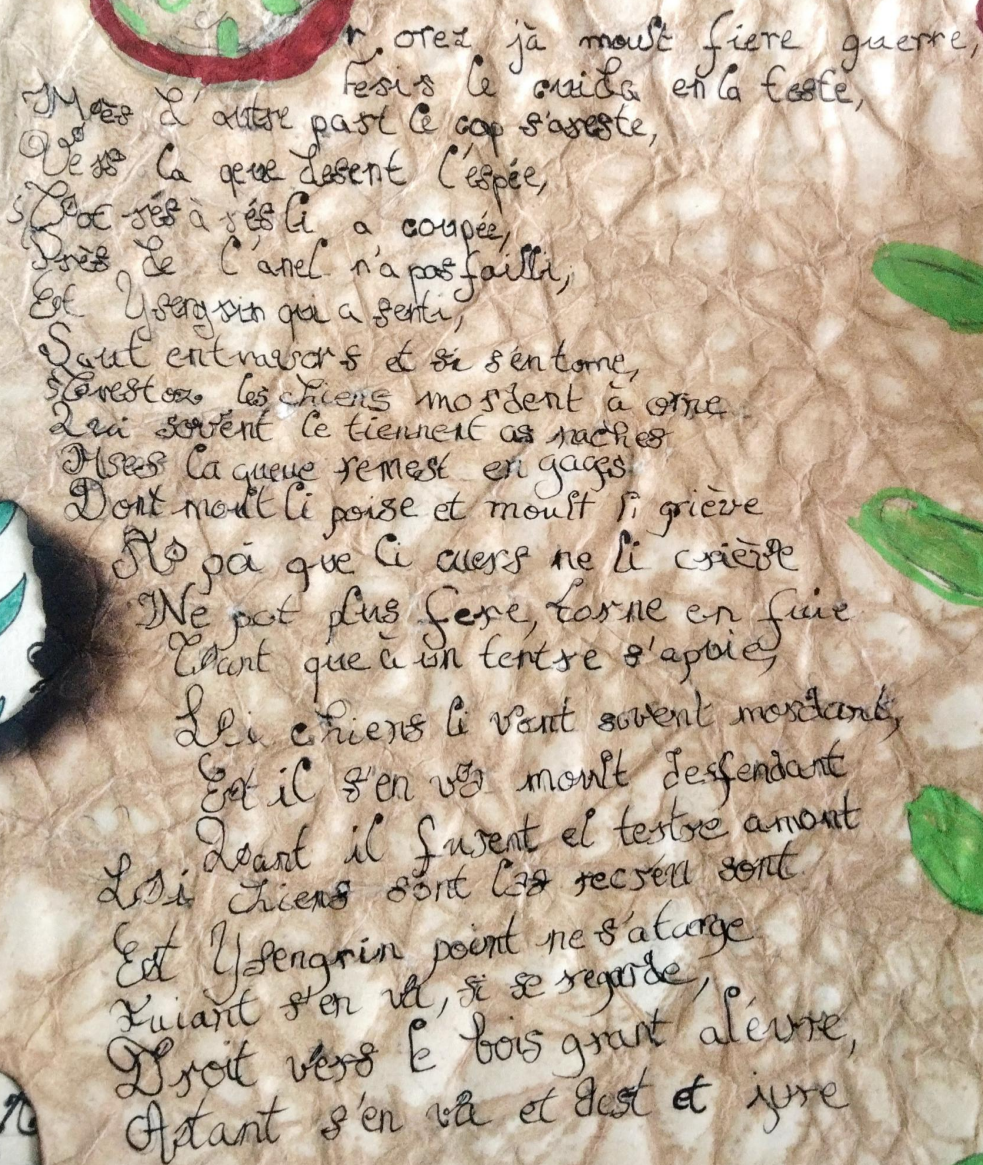 orez jà moult fiere guerre,
Fesis le cuida en la teste,
Mès d'autre part le cop s'areste,
Vers la qeue desent l'espée,
Tot rés à rés li a coupée,
Près de l'anel n'a pas failli,
Et Ysengrin qui a senti,
Saut en travers et si s'en torne,
Trestoz les chiens mordent à orne
Qui sovent le tiennent as naches
Mses la queue remest en gages
Dont moult li poise et moult li griève
A poi que li cuers ne li criève
Ne pot plus fere, torne en fuie
Tant que à un tertre s'apuie,
Li chiens li vont sovent mordant,
Et il s'en va moult desfendant
Qant il furent el tertre amont
Li chiens sont las recréu sont
Et Ysengrin point ne s'atarge
Fuiant s'en va, si se regarde,
Droit vers le bois grant aléure,
Atant s'en va et dist et jure